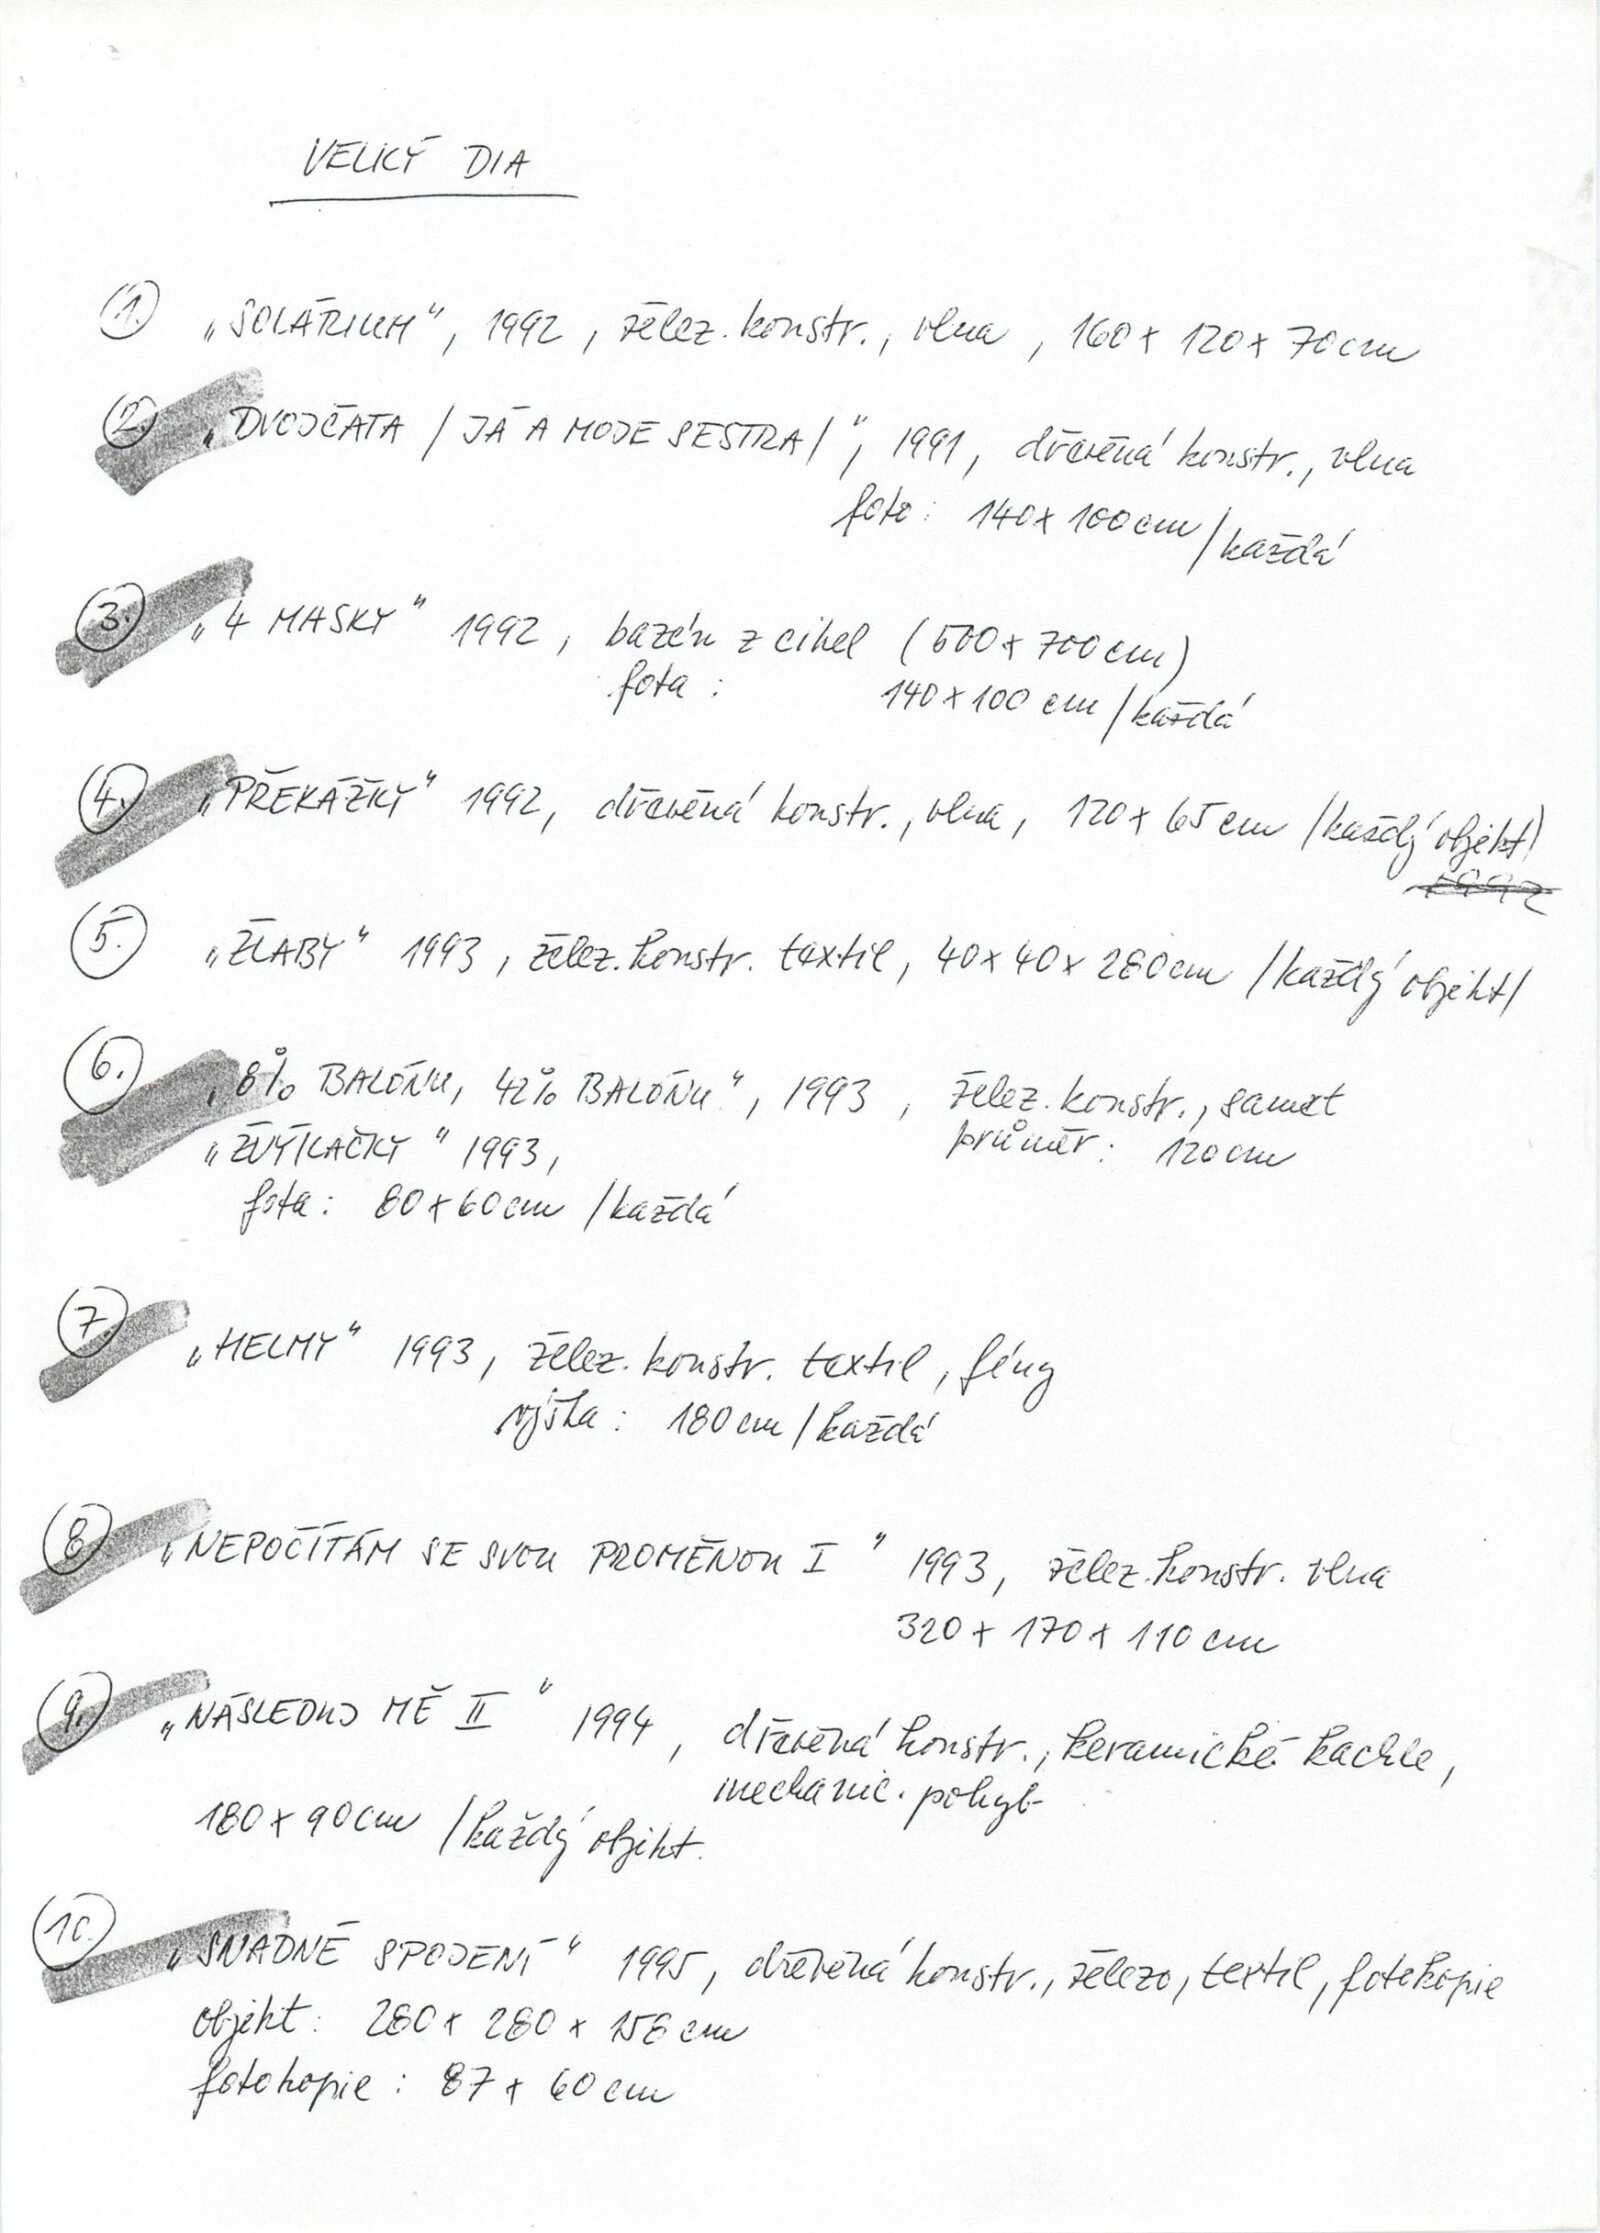 VELKÝ DIA
1. „SOLÁRIUM", 1992, želez. konstr., vlna, 160 x 120 x 70cm
2. „DVOJČATA / JÁ A MOJE SESTRA/", 1991, dřevěná konstr., vlna
foto: 140 x 100cm / každá
3. „4 MASKY" 1992, bazén z cihel (500 x 700cm)
fota: 140 x 100 cm / každá
4. „PŘEKÁŽKY" 1992, dřevěná konstr., vlna, 120 x 65cm /každý objekt/
1992
5. „ŽLABY" 1993, želez. konstr. textil, 40 x 40 x 280cm /každý objekt/
6. „8% BALÓNU, 42% BALÓNU", 1993, želez. konstr., samet
„ŽVÝKAČKY" 1993, průměr: 120cm
fota: 80 x 60cm /každá
7. „HELMY" 1993, želez. konstr. textil, fény
výška: 180cm / každá
8. „NEPOČÍTÁM SE SVOU PROMĚNOU I" 1993, želez. konstr. vlna
320 x 170 x 110 cm
9. „NÁSLEDUJ MĚ II" 1994, dřevěná konstr., keramické kachle,
mechanic. pohyb
180 x 90cm /každý objekt.
10. „SNADNÉ SPOJENÍ" 1995, dřevěná konstr., železo, textil, fotokopie
objekt: 280 x 280 x 158 cm
fotokopie: 87 x 60 cm